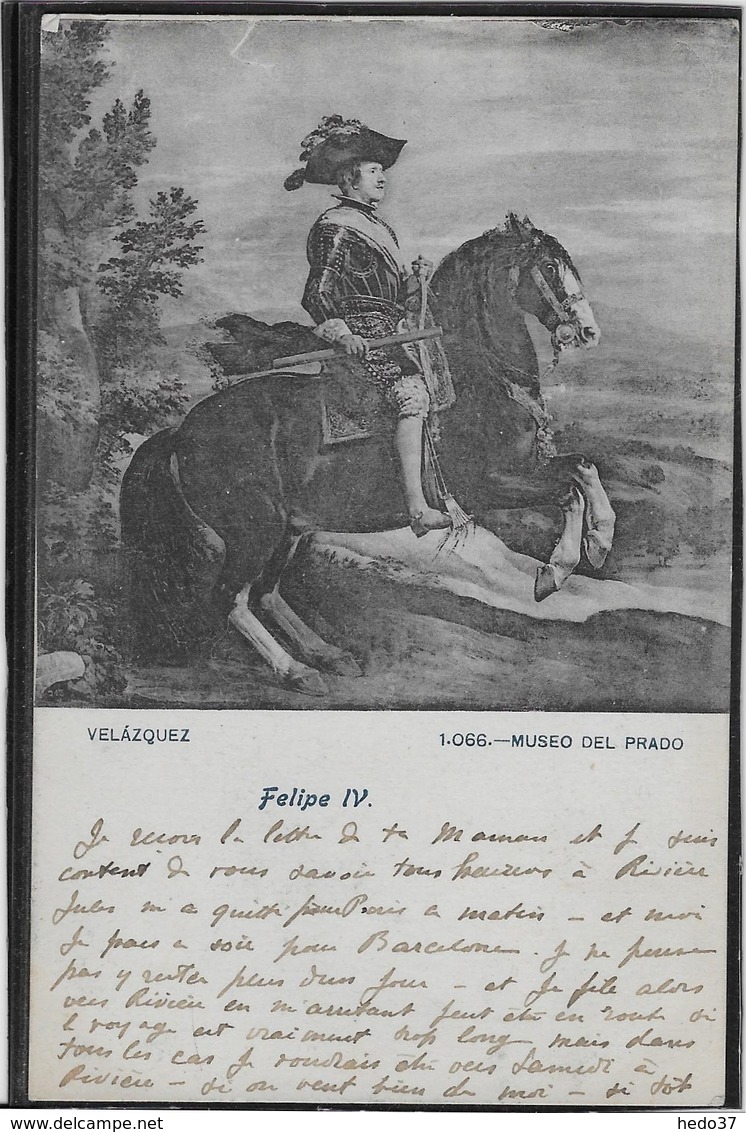 VELÁZQUEZ
1.066.—MUSEO DEL PRADO
Felipe IV.
Je reçois la lettre de ta Maman et je suis
content de vous savoir tous heureux à Rivière
Jules m'a quitté pour Paris ce matin — et moi
Je pars ce soir pour Barcelone. Je ne pense
pas y rester plus d'un jour — et Je file alors
vers Rivière en m'arrêtant peut être en route si
le voyage est vraiment trop long, mais dans
tous les cas Je voudrais être vers Samedi à
Rivière — si on veut bien de moi — si tôt
hedo37